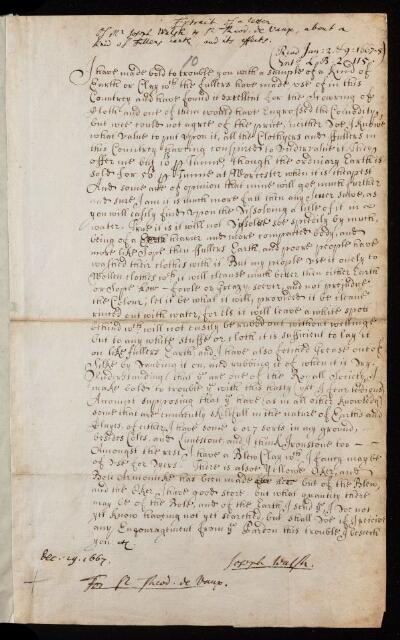 Extract of a letter
of Mr Joseph Walsh to Sr Theod. de Vaux, about a
kind of Fullers earth and its effects.
(Read Jan: 2. 1667/8)
Vol: L.B. 2. 115.
10
I have made bold to trouble you with a sample of a kind of
Earth or Clay wch the fullers have made use of in this
Countrey and have found it excellent for the scowring of
Cloth and one of them would have Engrossed the Commodity,
but wee could not agree of the price, neither doe I know
what value to put upon it, all the Clothyers and fullers in
this Countrey having conspired to undervalue it. They
offer me but 10 p Tunne, though the ordinary Earth is
sold for 50 p Tunne at Worcester when it is cheapest
And some are of opinion that mine will goe much further
and sure I am it is much more fatt than any other above, as
you will easily find upon the dissolving a little of it in
water. True it is it will not dissolve soe speedily by much,
being of a heavier and more compacted body, and
more like Sope then fullers Earth and poore people have
washed their clothes with it. But my people use it onely to
Wollen clothes wch it will cleanse much better then either Earth
or Sope Low - fowle or greazy soever, and not prejudice
the Colour, let it be what it will, provided it be cleane
rinced out with water, for els it will leave a white spott
behind wch will not easily be rubbed out without wettinge
but to any white stuffe or cloth it is sufficient to lay it
on like fullers Earth and I have also fetched Grease out of
Silke by dawbing it on, and rubbing it of when it is dry.
Understanding that yu are one of the Royall Society I
make bolder to trouble yu with this rusty, yet I fear tedious
Account supposing that yu have (as in all other knowledg)
some that are eminently skilfull in the nature of Earths and
Clayes, of either I have some 6 or 7 sorts in my ground,
besides Coles, and Limestone, and I think Ironstone too -
Amongst the rest I have a Blew Clay wch I fancy may be
of use for Dyers. There is also Yellowe Oker, and
Bole Armoniack has been made out of the Blew,
and the Oker I have good store but what quantity there
may be of the Bole, and of the Earth I send yu I doe not
yet know having not yet searched but shall doe if I perceive
any Encouragement from yu Pardon this trouble I beseech
you &c.
Dec. 29. 1667.
Joseph Walsh.
For Sr Theod. de Vaux.